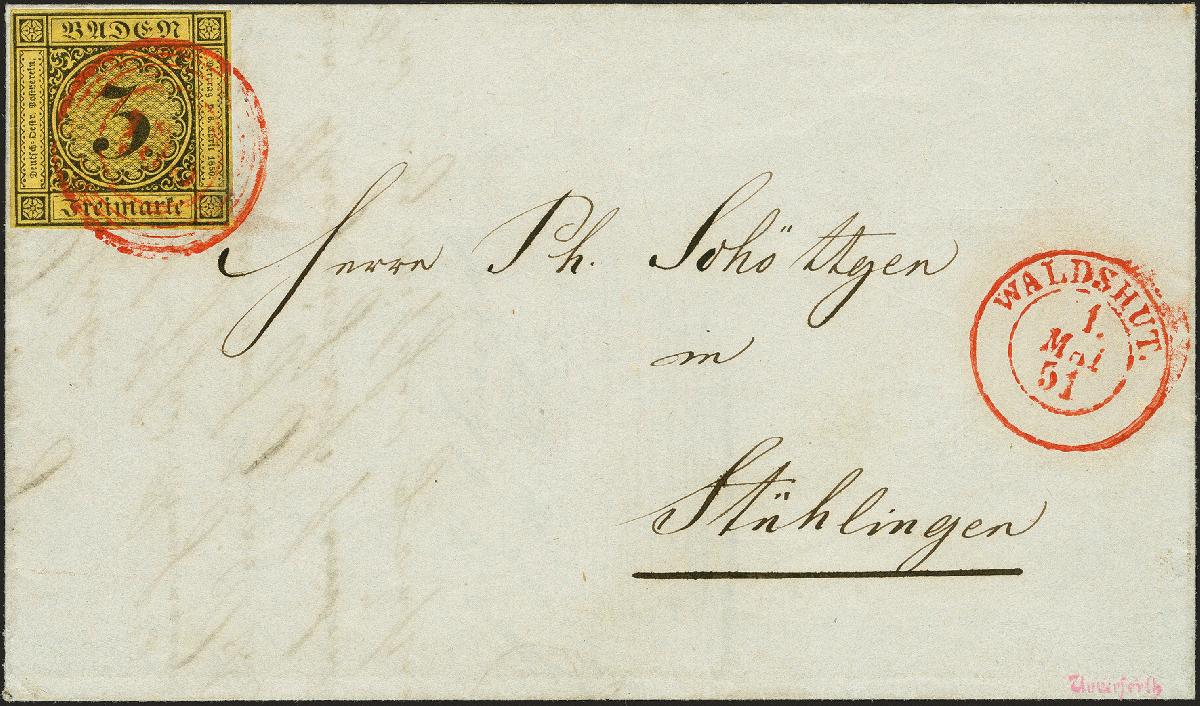 BADEN
Deutsch-Östr. Postverein.
3.
Vertrag v. 6. April 1850.
Freimarke
Herrn Ph. Schöttgen
in
Stühlingen
WALDSHUT.
1.
Mai
51